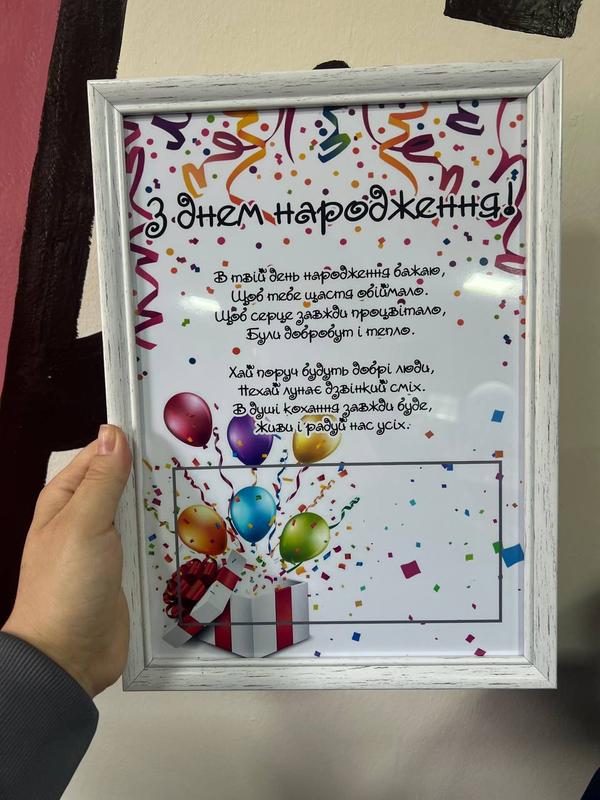 З днем народження!
В твій день народження бажаю,
Щоб тебе щастя обіймало.
Щоб серце завжди процвітало,
Були добробут і тепло.
Хай поруч будуть добрі люди,
Нехай лунає дзвінкий сміх.
В душі кохання завжди буде,
Живи і радуй нас усіх.